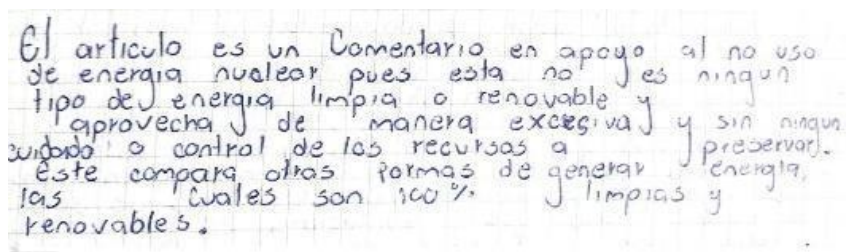 El articulo es un Comentario en apoyo al no uso
de energia nuclear pues esta no es ningun
tipo de energia limpia o renovable y
aprovecha de manera excesiva y sin ningun
cuidado o control de los recursos a preservar.
este compara otras formas de generar energia,
las cuales son 100% limpias y
renovables.